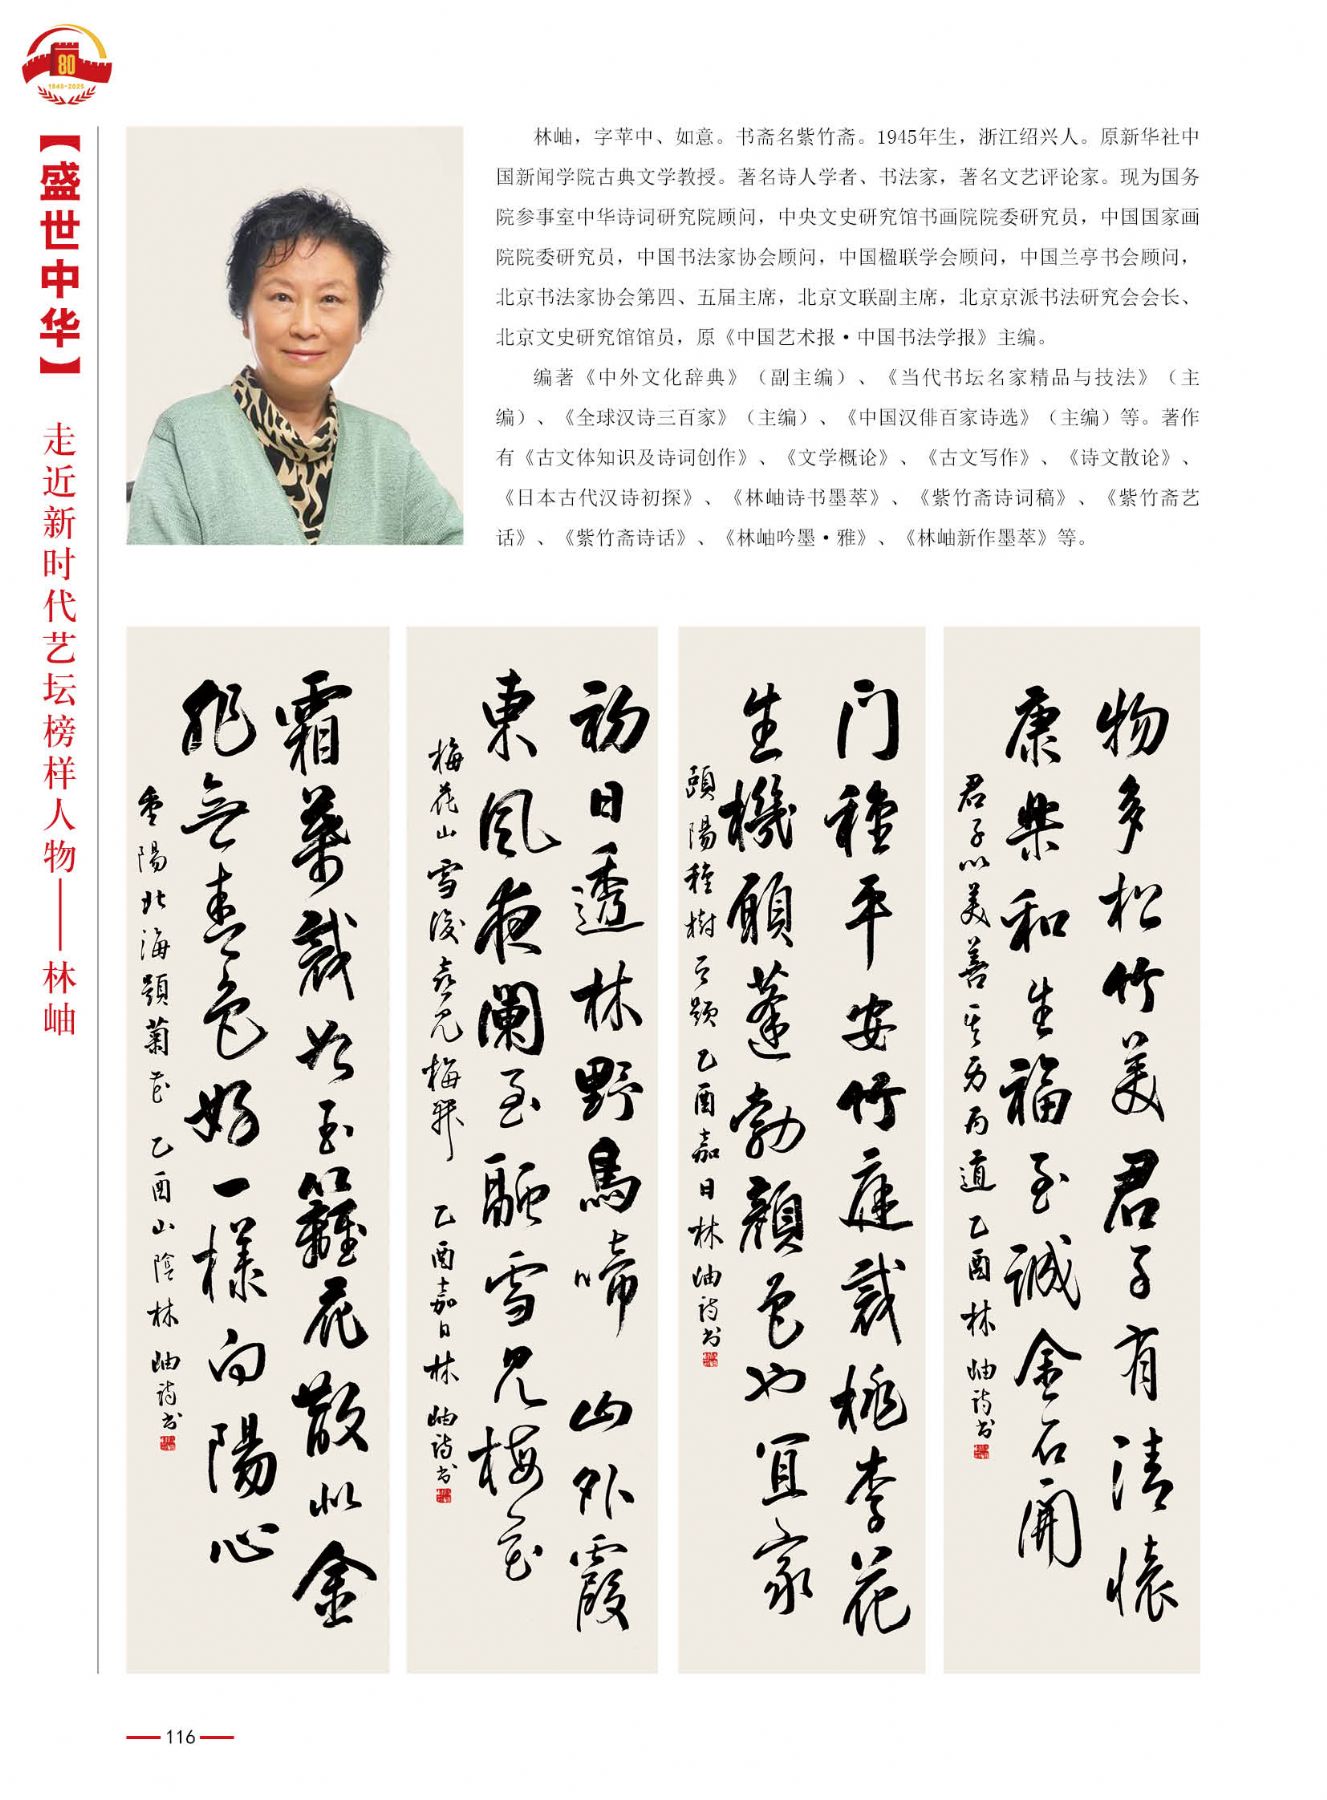 80
1945-2025
【盛世中华】
走近新时代艺坛榜样人物——林岫
林岫，字苹中、如意。书斋名紫竹斋。1945年生，浙江绍兴人。原新华社中
国新闻学院古典文学教授。著名诗人学者、书法家，著名文艺评论家。现为国务
院参事室中华诗词研究院顾问，中央文史研究馆书画院院委研究员，中国国家画
院院委研究员，中国书法家协会顾问，中国楹联学会顾问，中国兰亭书会顾问，
北京书法家协会第四、五届主席，北京文联副主席，北京京派书法研究会会长、
北京文史研究馆馆员，原《中国艺术报·中国书法学报》主编。
编著《中外文化辞典》（副主编）、《当代书坛名家精品与技法》（主
编）、《全球汉诗三百家》（主编）、《中国汉俳百家诗选》（主编）等。著作
有《古文体知识及诗词创作》、《文学概论》、《古文写作》、《诗文散论》、
《日本古代汉诗初探》、《林岫诗书墨萃》、《紫竹斋诗词稿》、《紫竹斋艺
话》、《紫竹斋诗话》、《林岫吟墨·雅》、《林岫新作墨萃》等。
物多松竹美君子有清怀
康乐和生福至诚金石开
君子以美善其身而道 乙酉林岫诗书
门种平安竹庭栽桃李花
生機願蓬勃顏色也宜家
頤陽種樹 題 乙酉嘉日林岫诗书
初日透林野鳥啼山外霞
東風夜闌至融雪見梅花
梅花山雪後喜見梅 乙酉嘉日林岫诗书
霜葉裁如玉籬花散似金
非無春色好一樣向陽心
重陽北海題菊花 乙酉山陰林岫诗书
116